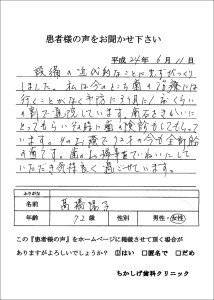 患者様の声をお聞かせ下さい
平成24年6月11日
設備の近代的なことにまずびっくり
しました。私は今のところ歯の治療には
行くことがなく予防に3ヶ月に1回くらい
の割で通院しています。歯石をきれいに
とってもらいその時に歯の検診もしてもらって
います。そのお蔭で72才の今も全部自分
の歯です。歯のお掃除をていねいにして
いただき気持良く過ごせています。
ふりがな
名前 高橋陽子
年齢 72歳 性別 男性・女性
この『患者様の声』をホームページに掲載させて頂く場合が
ありますがよろしいでしょうか？ □はい □匿名で □だめ
ちかしげ歯科クリニック